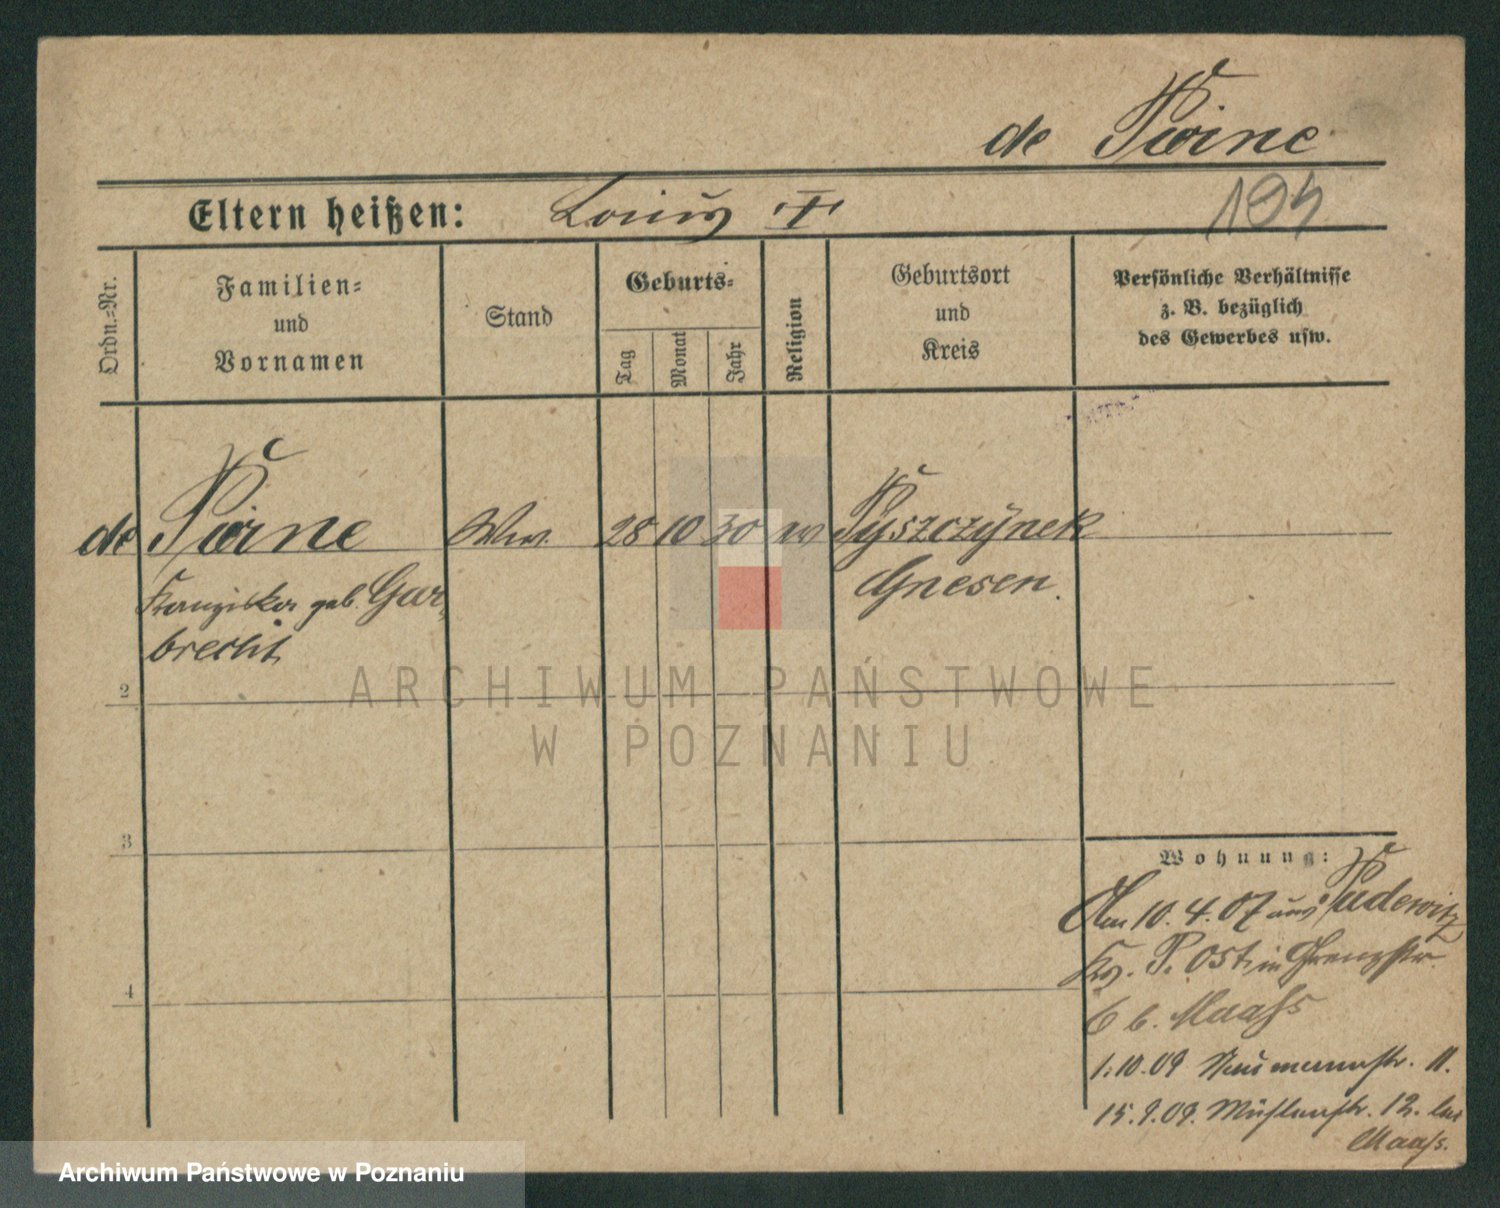 de Poirre
Eltern heißen: Louis †
194
Ordn.-Nr.
Familien-
und
Vornamen
Stand
Geburts-
Tag
Monat
Jahr
Religion
Geburtsort
und
Kreis
Persönliche Verhältnisse
z. B. bezüglich
des Gewerbes usw.
de Ww. 28 10 30 Pyszczynek
Gnesen.
Franziska geb. Gar-
brecht
2
3
4
Wohnung:
Am 10.4.07 aus Pudewitz
Kr. P. Ost, in Grenzstr.
6 b. Maaß
1.10.09 Naumannstr. 11.
15.9.09. Mühlenstr. 12. bei
Maaß.
ARCHIWUM PAŃSTWOWE
W POZNANIU
Archiwum Państwowe w Poznaniu